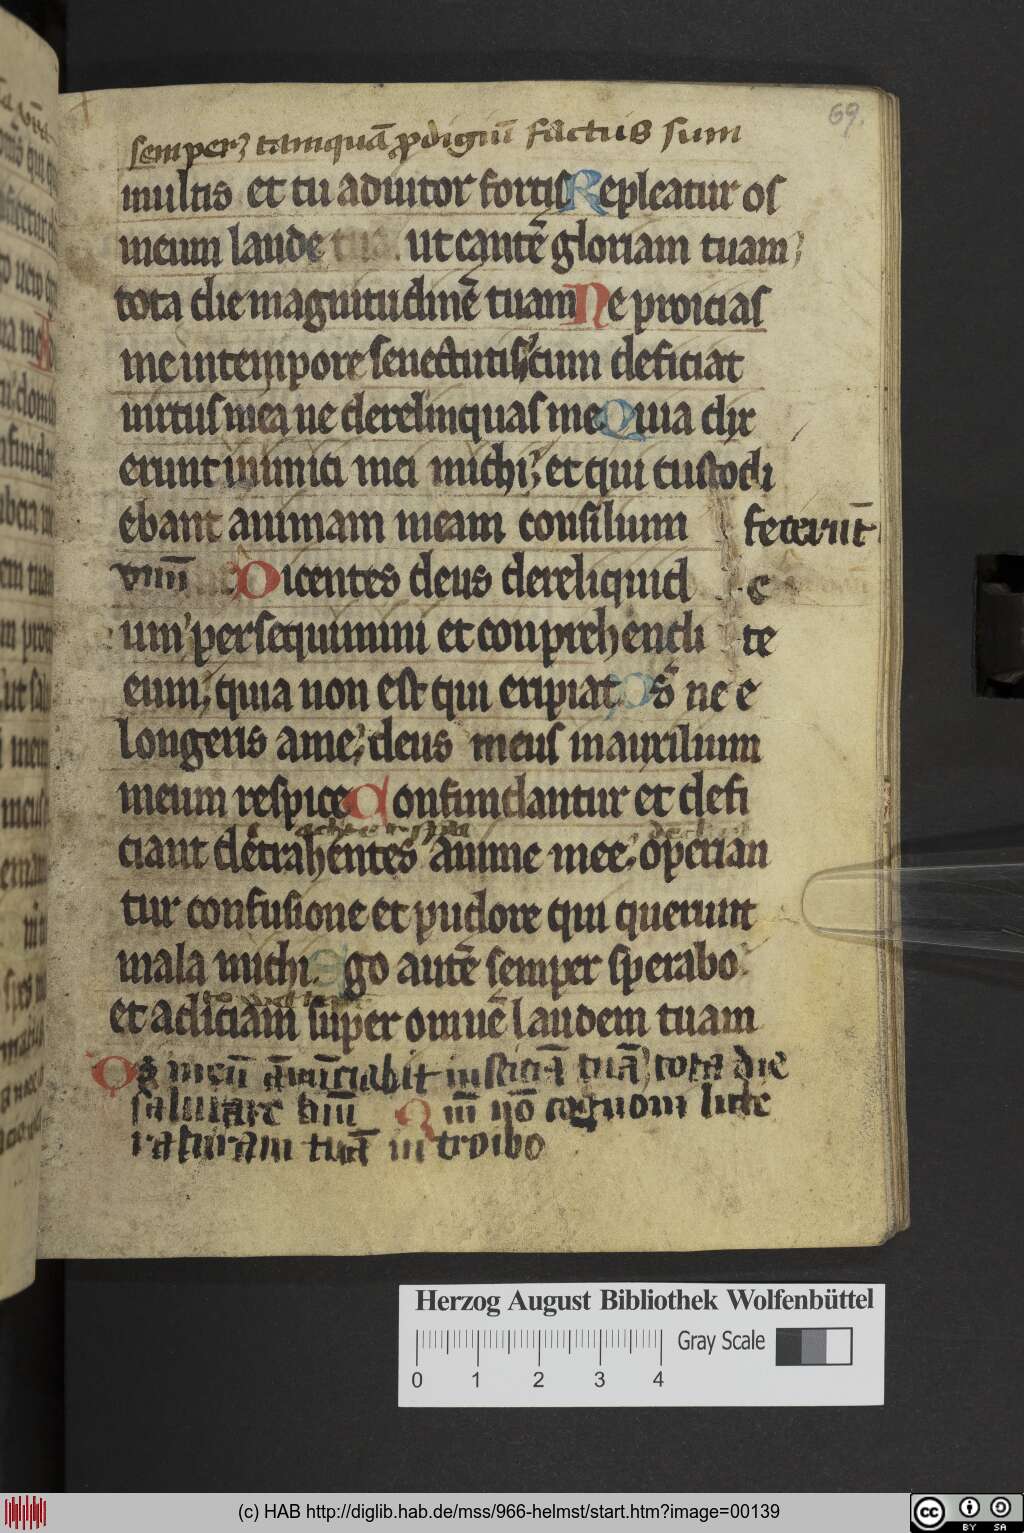 69.
semper; tamquā prodigiū factus sum
multis et tu adiutor fortis Repleatur os
meum laude tua. ut cantē gloriam tuam;
tota die magnitudinē tuam Ne proicias
me in tempore senectutis; cum deficiat
uirtus mea ne derelinquas me Quia dix
erunt inimici mei michi; et qui custodi
ebant animam meam consilium fecerūt
unū Dicentes deus dereliquid e
um; persequimini et conprehendi te
eum; quia non est qui eripiat Ds ne e
longeris a me; deus meus in auxilium
meum respice Confundantur et defi
ciant detrahentes anime mee; operian
tur confusione et pudore qui querunt
mala michi. Ego autē semper sperabo
et adiciam super omnē laudem tuam
Os meū anūciabit iusticiā tuā; tota die
salutare tuū Qm nō cognoui litte
raturam tuā introibo
Herzog August Bibliothek Wolfenbüttel
Gray Scale
0 1 2 3 4
(c) HAB http://diglib.hab.de/mss/966-helmst/start.htm?image=00139
cc BY SA